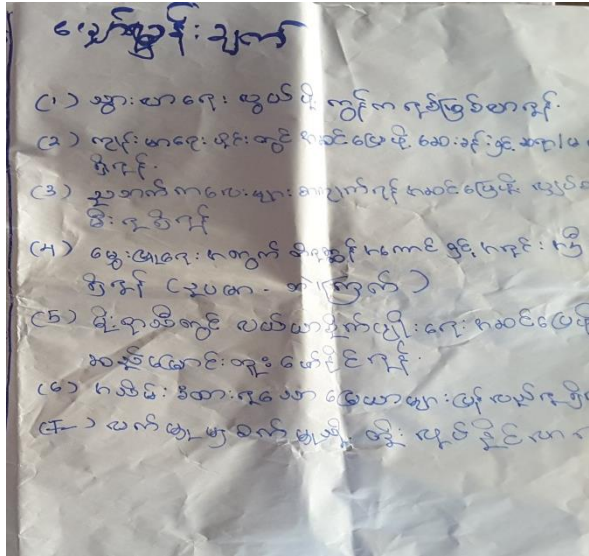 မျှော်မှန်းချက်
(၁) သွားလာရေး လွယ်ဖို့ ကွန်က ရစ်ဖြစ်လာရန်.
(၂) ကျန်းမာရေး ပိုင်းတွင် အဆင်ပြေဖို့ ဆေးခန်းနှင့် ဆရာ/မ
ရှိရန်.
(၃) ညဘက် ကလေးများ စာကျက်ရန် အဆင်ပြေဖို့ လျှပ်စ
မီးရရှိရန်
(4) မွေးမြူရေး အတွက် တိရစ္ဆာန် အကောင် နှင့် အရင်းအနှီ
ရှိရန် (ဥပမာ - ဘဲ၊ကြက်)
(5) မိုးရာသီတွင် လယ်ယာစိုက်ပျိုးရေး အဆင်ပြေဖို
ဆည်မြောင်း တူးဖော်နိုင်ရန်.
(6) အသိမ်းခံထားရသော မြေယာများ ပြန်လည်ရရှိ
(7) လက်မှုမှ စက်မှုသို့ တိုး လုပ်နိုင်လာ